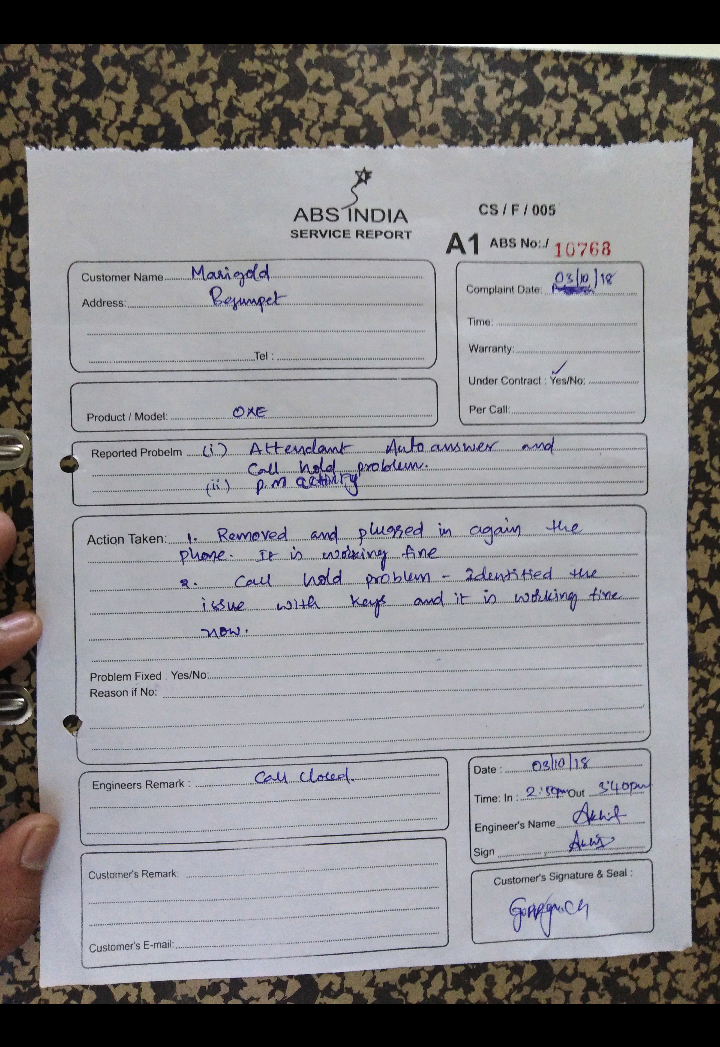 ABS INDIA
SERVICE REPORT
CS / F / 005
A1 ABS No:./ 10768
Customer Name Marigold
Address: Begumpet
Tel :
Complaint Date: 03/10/18
Time:
Warranty:
Under Contract : Yes/No: ✓
Per Call:
Product / Model: OXE
Reported Probelm (i) Attendant Auto answer and
Call hold problem.
(ii) P.M activity
Action Taken: 1. Removed and plugged in again the
phone. It is working fine
2. Call hold problem - Identified the
issue with keys and it is working fine
now.
Problem Fixed : Yes/No:
Reason if No:
Engineers Remark : Call Closed.
Date : 03/10/18
Time: In : 2:50pm Out 3:40pm
Engineer's Name Akhil
Sign
Customer's Remark:
Customer's E-mail:
Customer's Signature & Seal :